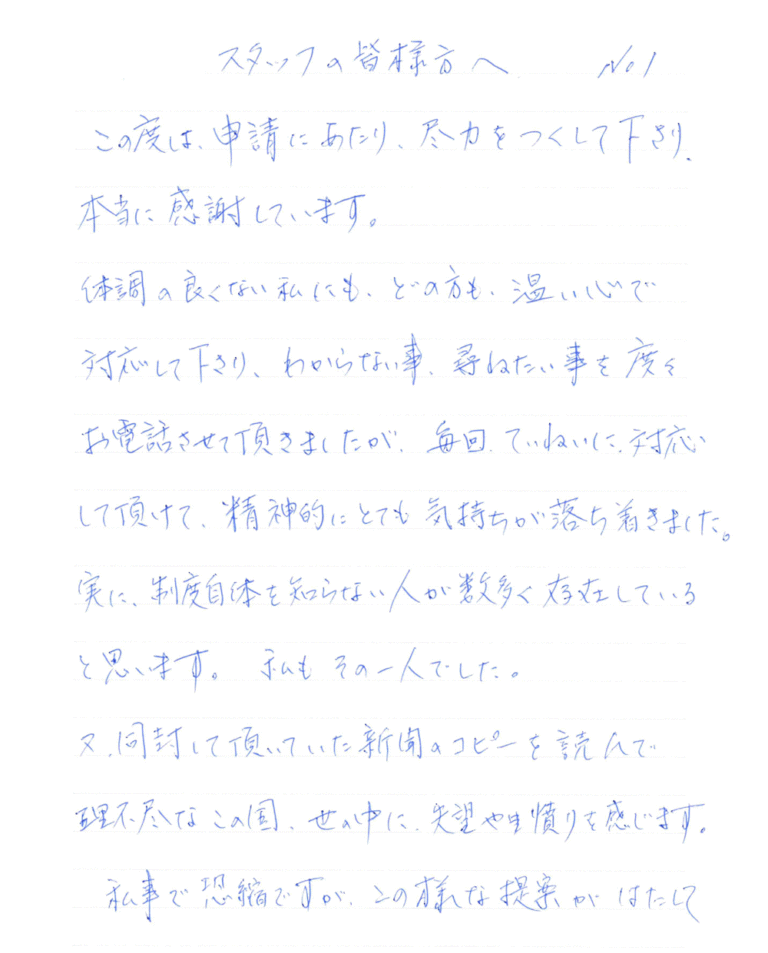 スタッフの皆様方へ No1
この度は、申請にあたり、尽力をつくして下さり、
本当に感謝しています。
体調の良くない私にも、どの方も、温い心で
対応して下さり、わからない事、尋ねたい事を度々
お電話させて頂きましたが、毎回、ていねいに、対応
して頂けて、精神的にとても気持ちが落ち着きました。
実に、制度自体を知らない人が数多く存在している
と思います。 私もその一人でした。
又、同封して頂いていた新聞のコピーを読んで
理不尽なこの国、世の中に、失望や憤りを感じます。
私事で恐縮ですが、この様な提案がはたして